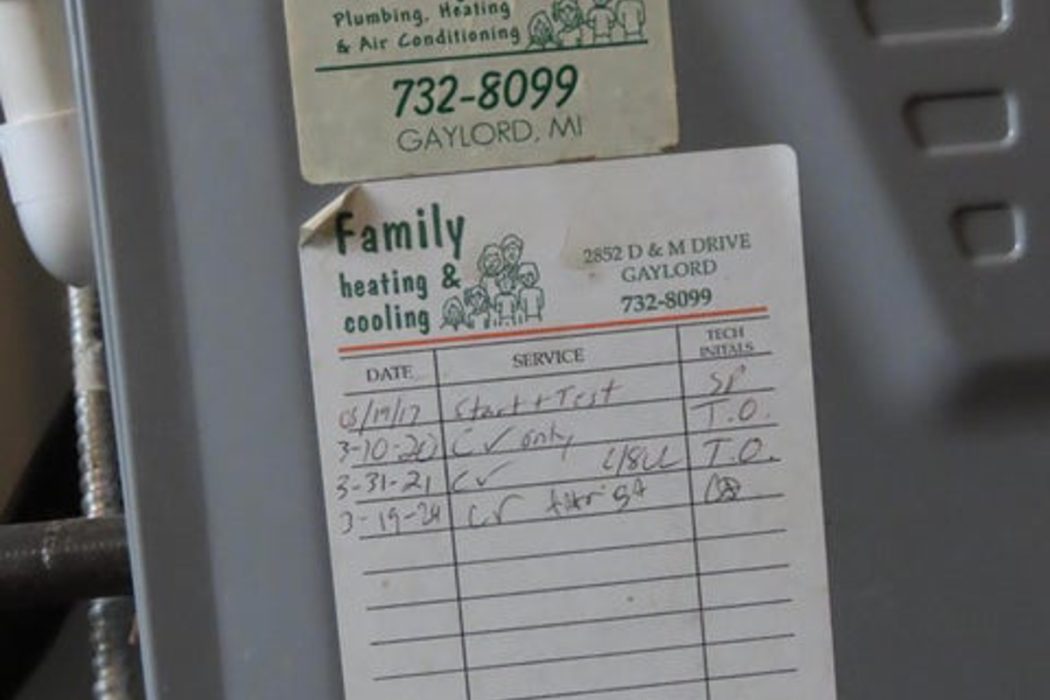 Plumbing, Heating
& Air Conditioning
732-8099
GAYLORD, MI
Family
heating &
cooling
2852 D & M DRIVE
GAYLORD
732-8099
DATE SERVICE TECH INITALS
05/19/17 Start + Test SP
3-10-20 C ✓ only T.O.
3-31-21 C ✓ T.O.
3-19-24 C ✓